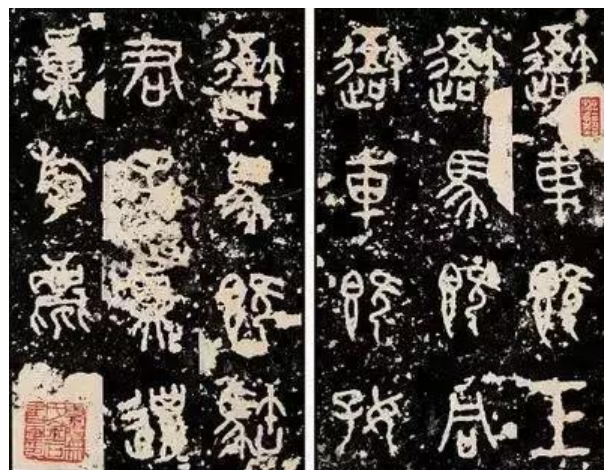 吾車既工
吾馬既同
吾車既好
吾馬既
君子員邋
員邋員